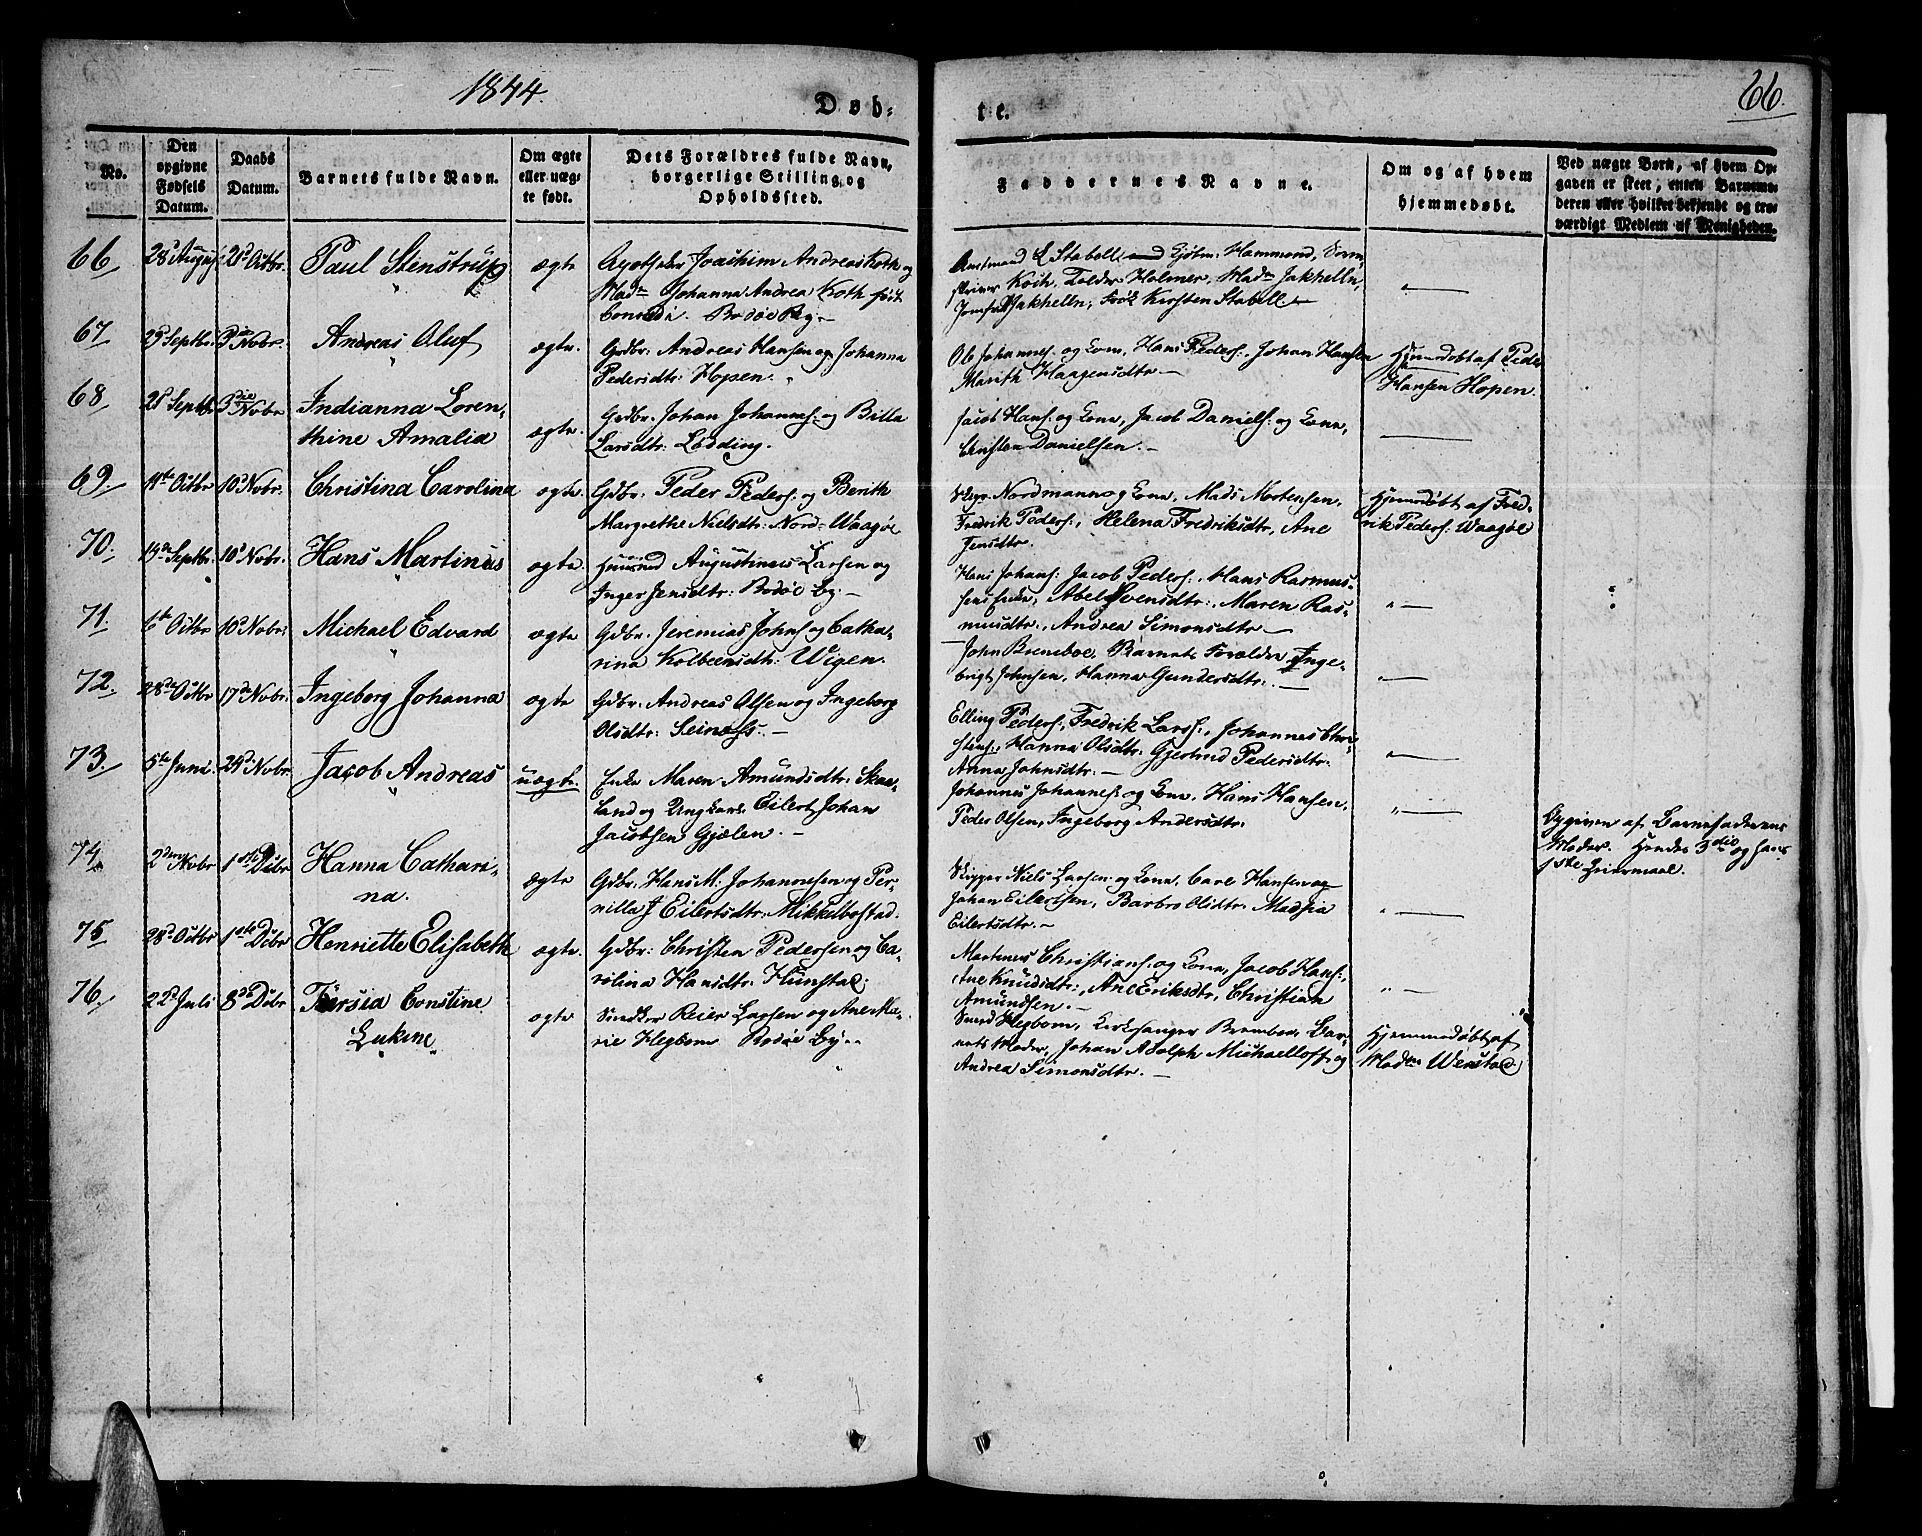 1844.
66.
Døb-
te.
No.
Den opgivne Fødsels Datum.
Daabs Datum.
Barnets fulde Navn.
Om ægte eller uægte født.
Dets Forældres fulde Navn, borgerlige Stilling, og Opholdssted.
Faddernes Navne.
Om og af hvem hjemmedøbt.
Ved uægte Børn, af hvem Opgaven er skeet, enten Barnemoderen eller hvilket bekjendt og troværdigt Medlem af Menigheden.
66 28 August 21d Octbr. Paul Stenstrup ægte Apotheker Joachim Andreas Koth og
Madm Johanna Andrea Koth født
Conradi. Bodøe By.
Amtmand Stabell, Hammond, Soren-
skriver Koch, Tolder Holmer, Madm Jakhelln,
Jomfru Jakhelln, Frøk Kirsten Stabell
67 29 Septbr. 3die Novbr. Andreas Oluf ægte. Gdbr: Andreas Hansen og Johanna
Pedersdtr: Hopen.
Ole Johannes: og Kone, Hans Peders:, Johan Hansen
Marith Haagensdtr
Hjemmedøbt af Peder
Hansen Hopen.
68 28 Septbr 3die Novbr Indianna Loren-
thine Amalia ægte. Gdbr. Johan Johannes: og Britta
Larsdtr: Lødding.
Jacob Hans: og Kone, Jacob Daniels: og Kone,
Danielsen.
69 11te Octbr 10d Novbr. Christina Carolina ægte. Gdbr: Peder Peders: og Berith
Margrethe Nielsdtr: Nord-Waagøe
Nordmann og Kone, Mads Mortensen,
Fredrik Peders:, Helena Fredriksdtr, Ane
Jensdtr.
Hjemmedøbt af Fred-
rik Peders: Waagøe
70. Septbr. 10d Novbr. Hans Martinus ægte Huusmd Augustinus Larsen og
Inger Jensdtr: Bodøe By.
Hans Johans: Jacob Peders:, Hans Rasmus-
sens Enke, Abel Svensdtr:, Maren Ras-
musdtr., Andrea Simonsdtr
71. 6te Octbr 10d Novbr: Michael Edvard ægte Gdbr. Jeremias Johns: og Catha-
rina Kolbeensdtr: Wigen.
John Bremboe, Barnets Forælder, Inge-
brigt Johnsen, Hanna Gundersdtr.
72. 28de Octbr 17de Novbr. Ingeborg Johanna ægte Gdbr: Andreas Olsen og Ingeborg
Olsdtr: Seinæss.
Elling Peders:, Fredrik Lars:, Johannes Chri-
stens:, Hanna Olsdtr: Gjertrud Pedersdtr:
Anna Johnsdtr:
73. 5te Juni. 24d Novbr Jacob Andreas uægte. Enke Maren Amundsdtr: Skaa-
land og Ungkarl Eilert Johan
Jacobsen Gjælen.
Johannes Johannes: og Kone, Hans Hansen,
Peder Olsen, Ingeborg Andersdtr:
Opgiven af Barnefaderens
Moder. Hendes 3die og hans
1ste Leiermaal.
74 2den Novbr 1ste Debr Hanna Cathari-
na. ægte Gdbr: Hans M: Johannesen og Per-
nilla J Eilertsdtr: Mikkelbostad.
Skipper Niels Larsen og Kone, Carl Hansen og
Johan Eilertsen, Barbro Olsdtr: Madsia
Eilertsdtr.
75 28d Octbr 1ste Debr Henriette Elisabeth ægte. Gdbr: Christen Pedersen og Ca-
rolina Hansdtr: Hunstad.
Martinus Christians: og Kone, Jacob Hans:,
Ane Knudsdtr:, Ane Eriksdtr, Christian
Amundsen.
76. 22d Juli 8de Debr Thersia Constine
Lukine ægte Snedker Reier Larsen og Ane Ma-
rie Hegbom Bodøe By.
Hegbom, Kirkesanger Bremboe, Bar-
nets Moder, Johan Adolph Michaeloff og
Andrea Simonsdtr.
Hjemmedøbt af
Madm Wenstad